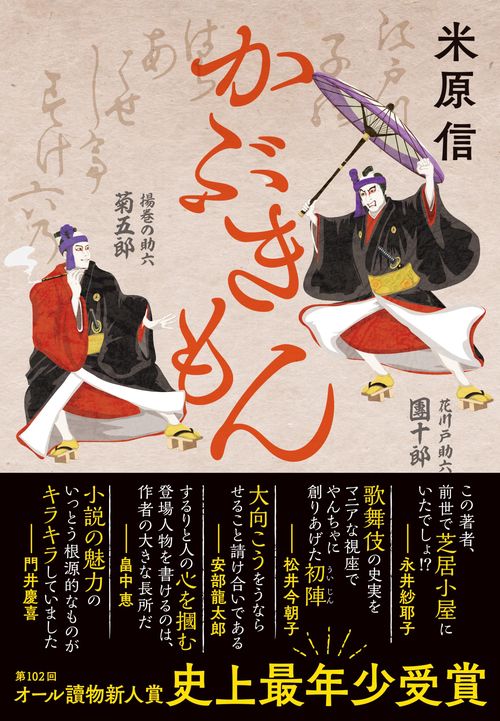 米原信
かぶきもん
揚巻の助六
菊五郎
花川戸助六
團十郎
この著者、
前世で芝居小屋に
いたでしょ!?
──永井紗耶子
歌舞伎の史実を
マニアな視座で
やんちゃに
創りあげた初陣
ういじん
──松井今朝子
大向こうをうなら
せること請け合いである
──安部龍太郎
するりと人の心を摑む
登場人物を書けるのは、
作者の大きな長所だ
──畠中恵
小説の魅力の
いっとう根源的なものが
キラキラしていました
──門井慶喜
第102回
オール讀物新人賞
史上最年少受賞